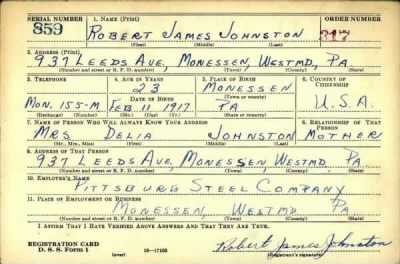 SERIAL NUMBER 1. NAME (Print) ORDER NUMBER
859 ROBERT JAMES JOHNSTON
(First) (Middle) (Last)
2. ADDRESS (Print)
937 LEEDS AVE, MONESSEN, WESTMD, PA
(Number and street or R. F. D. number) (Town) (County) (State)
3. TELEPHONE 4. AGE IN YEARS 5. PLACE OF BIRTH 6. COUNTRY OF CITIZENSHIP
23 MONESSEN
DATE OF BIRTH (Town or county)
MON. 155-M FEB. 11 1917 PA U.S.A.
(Exchange) (Number) (Mo.) (Day) (Yr.) (State or country)
7. NAME OF PERSON WHO WILL ALWAYS KNOW YOUR ADDRESS 8. RELATIONSHIP OF THAT PERSON
MRS DELIA JOHNSTON MOTHER
(Mr., Mrs., Miss) (First) (Middle) (Last)
9. ADDRESS OF THAT PERSON
937 LEEDS AVE, MONESSEN, WESTMD, PA
(Number and street or R. F. D. number) (Town) (County) (State)
10. EMPLOYER'S NAME
PITTSBURG STEEL COMPANY
11. PLACE OF EMPLOYMENT OR BUSINESS
MONESSEN, WESTMD PA
(Number and street or R. F. D. number) (Town) (County) (State)
I AFFIRM THAT I HAVE VERIFIED ABOVE ANSWERS AND THAT THEY ARE TRUE.
REGISTRATION CARD
D. S. S. Form 1 (over) 16-17105 Robert James Johnston
(Registrant's signature)